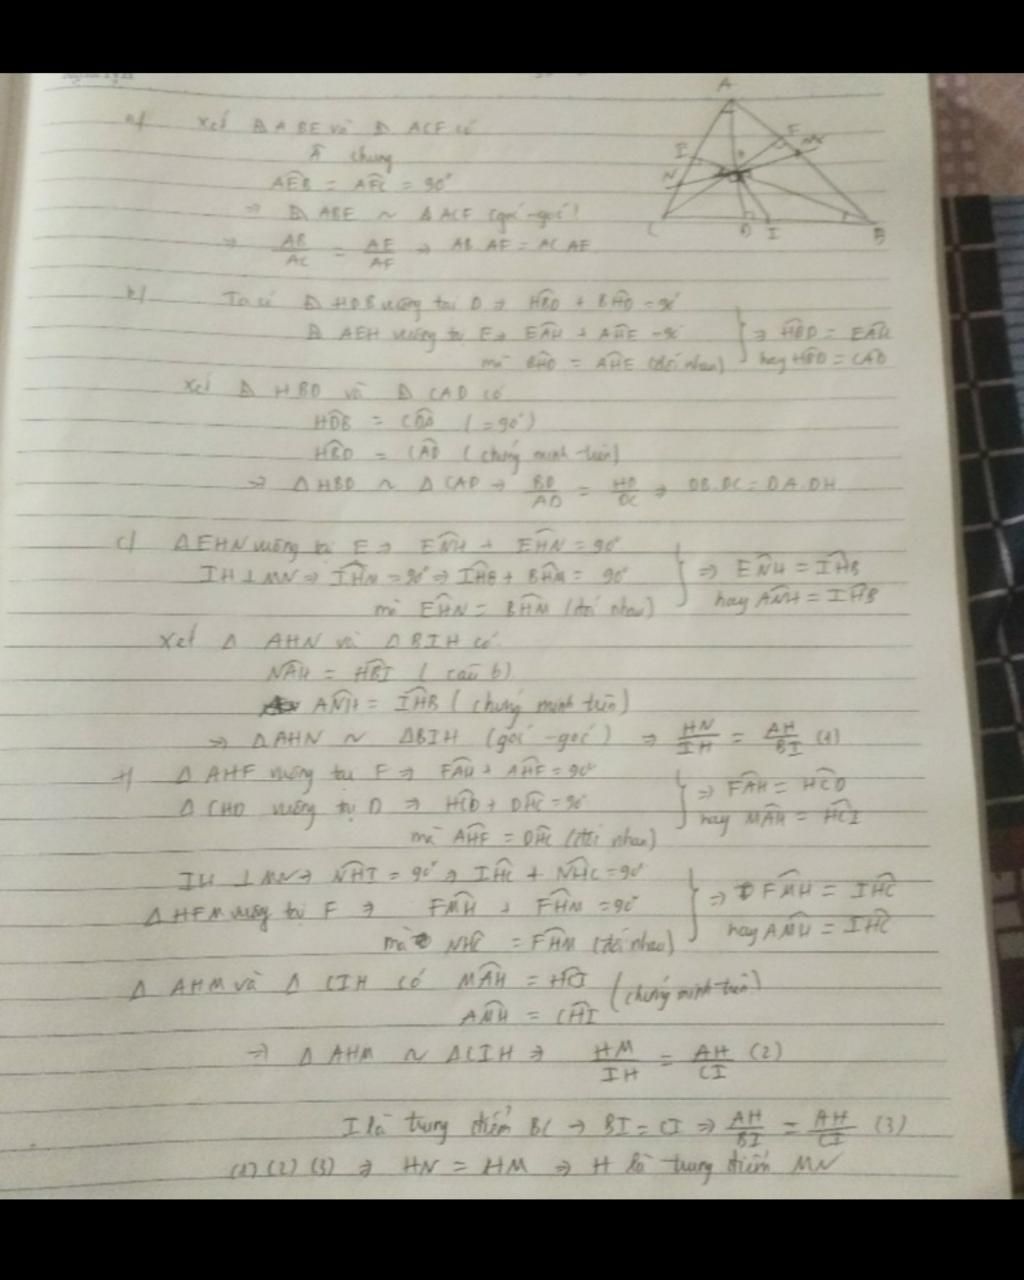 A
F
M
I
N
H
C
D
I
B
a/ Xét Δ ABE và Δ ACF có
Â chung
AÊB = AF̂C = 90°
=> Δ ABE ~ Δ ACF (góc-góc)
=> AB/AC = AE/AF => AB.AF = AC.AE
b/ Ta có Δ HDB vuông tại D => HB̂D + BĤD = 90°
Δ AEH vuông tại E => EÂH + AĤE = 90°
mà BĤD = AĤE (đối nhau)
} => HB̂D = EÂH
hay HB̂D = CÂD
Xét Δ HBD và Δ CAD có
HD̂B = CD̂A (= 90°)
HB̂D = CÂD (chứng minh trên)
=> Δ HBD ~ Δ CAD => BD/AD = HD/DC => DB.DC = DA.DH
c/ ΔEHN vuông tại E => EN̂H + EĤN = 90°
IH ⊥ MN => IĤM = 90° => IĤB + BĤM = 90°
mà EĤN = BĤM (đối nhau)
} => EN̂H = IĤB
hay AN̂H = IĤB
Xét Δ AHN và Δ BIH có
NÂH = HB̂I (câu b)
AN̂H = IĤB (chứng minh trên)
=> ΔAHN ~ ΔBIH (góc-góc) => HN/IH = AH/BI (1)
+/ Δ AHF vuông tại F => FÂH + AĤF = 90°
Δ CHD vuông tại D => HĈD + DĤC = 90°
mà AĤF = DĤC (đối nhau)
} => FÂH = HĈD
hay MÂH = HĈI
IH ⊥ MN => NĤI = 90° => IĤC + NĤC = 90°
Δ HFM vuông tại F => FM̂H + FĤM = 90°
mà NĤC = FĤM (đối nhau)
} => FM̂H = IĤC
hay AM̂H = IĤC
Δ AHM và Δ CIH có MÂH = HĈI
AM̂H = CĤI
(chứng minh trên)
=> Δ AHM ~ ΔCIH => HM/IH = AH/CI (2)
I là trung điểm BC => BI = CI => AH/BI = AH/CI (3)
(1) (2) (3) => HN = HM => H là trung điểm MN